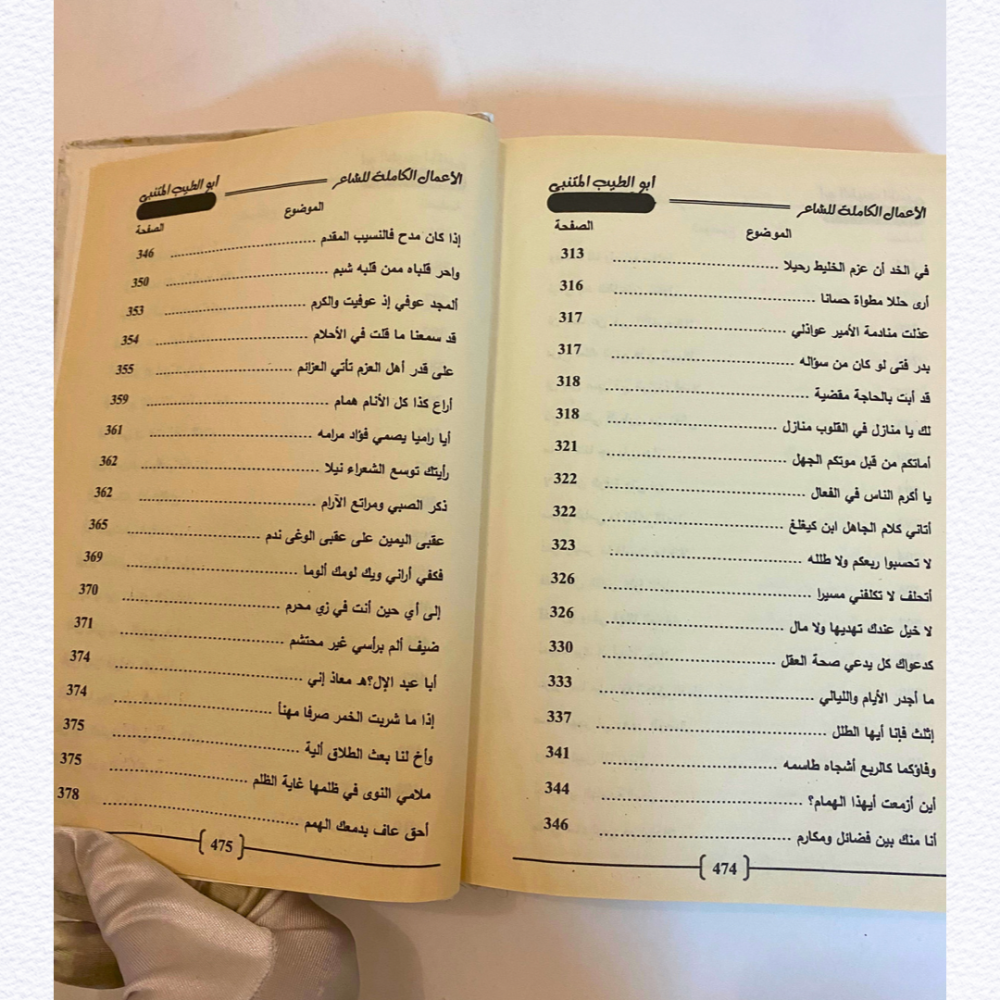 الأعمال الكاملة للشاعر أبو الطيب المتنبي
الموضوع الصفحة
في الخد أن عزم الخليط رحيلا 313
أرى حللا مطواة حسانا 316
عذلت منادمة الأمير عواذلي 317
بدر فتى لو كان من سؤاله 317
قد أبت بالحاجة مقضية 318
لك يا منازل في القلوب منازل 318
أماتكم من قبل موتكم الجهل 321
يا أكرم الناس في الفعال 322
أتاني كلام الجاهل ابن كيغلغ 322
لا تحسبوا ربعكم ولا طلله 323
أتحلف لا تكلفني مسيرا 326
لا خيل عندك تهديها ولا مال 326
كدعواك كل يدعي صحة العقل 330
ما أجدر الأيام والليالي 333
إثلث فإنا أيها الطلل 337
وفاؤكما كالربع أشجاه طاسمه 341
أين أزمعت أيهذا الهمام؟ 344
أنا منك بين فضائل ومكارم 346
474
الأعمال الكاملة للشاعر أبو الطيب المتنبي
الموضوع الصفحة
إذا كان مدح فالنسيب المقدم 346
واحر قلباه ممن قلبه شبم 350
ألمجد عوفي إذ عوفيت والكرم 353
قد سمعنا ما قلت في الأحلام 354
على قدر أهل العزم تأتي العزائم 355
أراع كذا كل الأنام همام 359
أيا راميا يصمي فؤاد مرامه 361
رأيتك توسع الشعراء نيلا 362
ذكر الصبي ومراتع الآرام 362
عقبى اليمين على عقبى الوغى ندم 365
فكفي أراني ويك لومك ألوما 369
إلى أي حين أنت في زي محرم 370
ضيف ألم برأسي غير محتشم 371
أبا عبد الإل؟ه معاذ إني 374
إذا ما شربت الخمر صرفا مهنأ 374
وأخ لنا بعث الطلاق ألية 375
ملامي النوى في ظلمها غاية الظلم 375
أحق عاف بدمعك الهمم 378
475